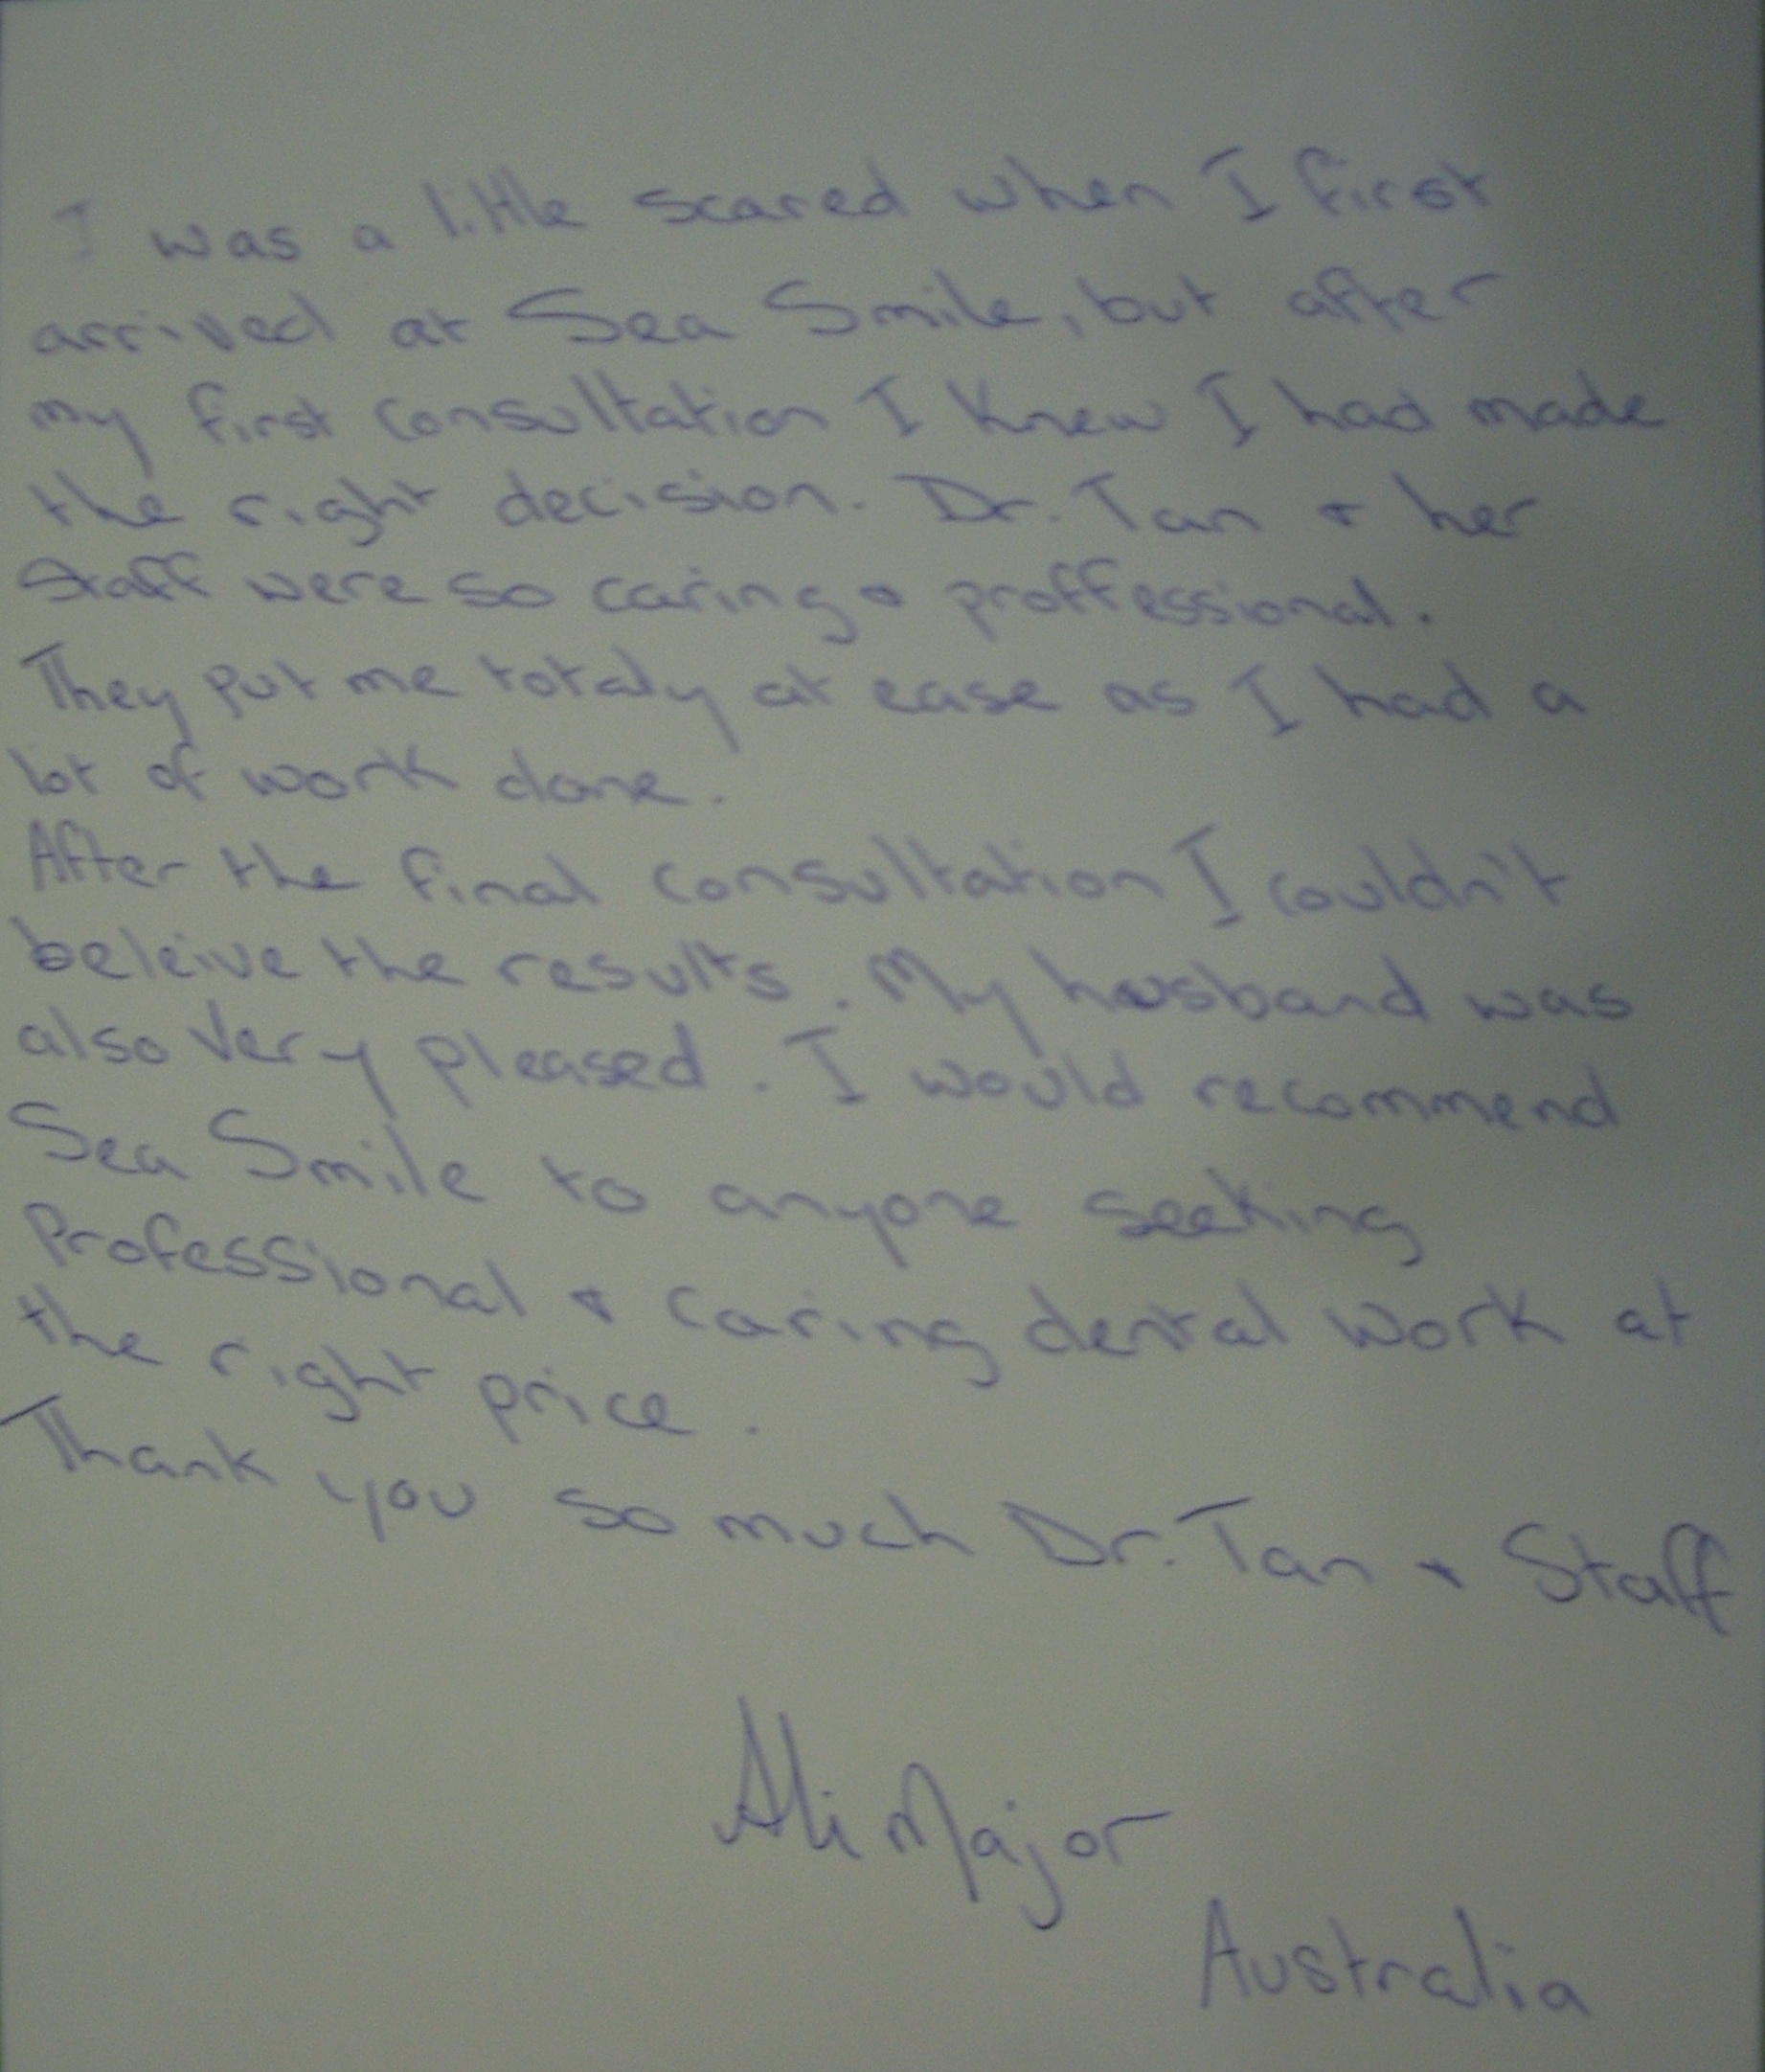 I was a little scared when I first
arrived at Sea Smile, but after
my first consultation I knew I had made
the right decision. Dr. Tan & her
staff were so caring & proffessional.
They put me totaly at ease as I had a
lot of work done.
After the final consultation I couldn't
beleive the results. My husband was
also very pleased. I would recommend
Sea Smile to anyone seeking
Professional & caring dental work at
the right price.
Thank you so much Dr. Tan & Staff
Ali Major
Australia